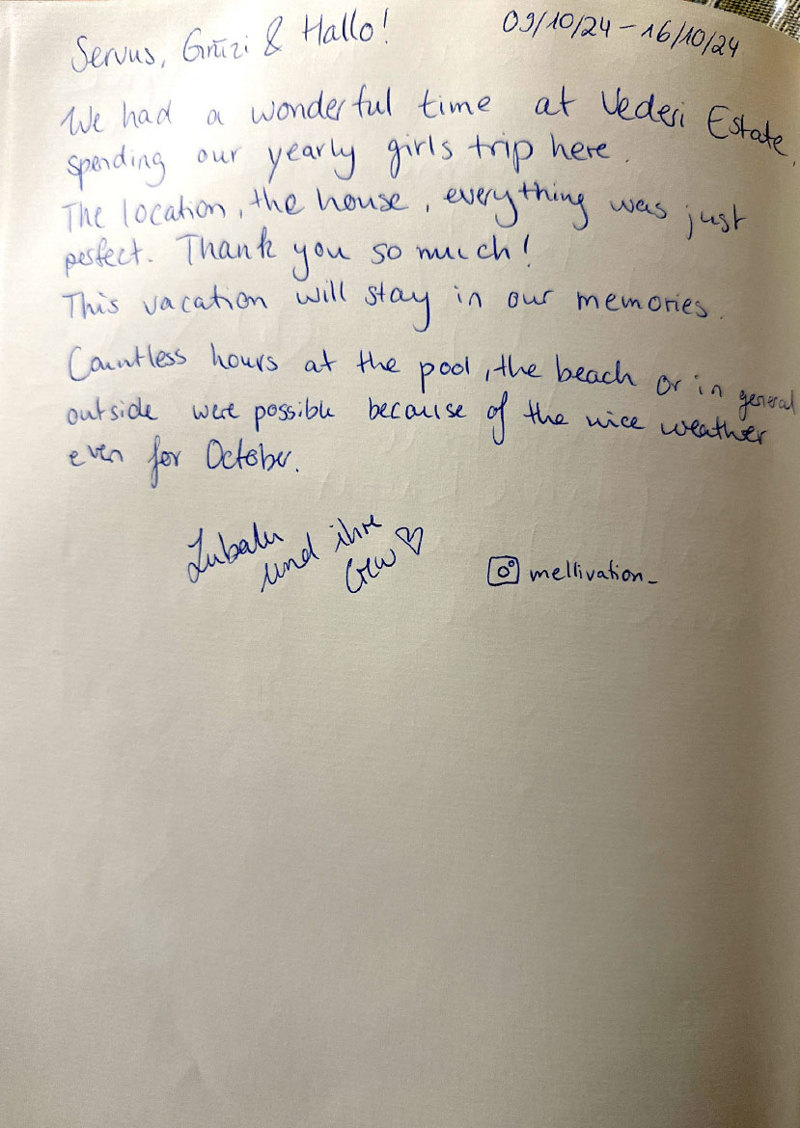 Servus, Grüzi & Hallo!
09/10/24 - 16/10/24
We had a wonderful time at Vederi Estate,
spending our yearly girls trip here.
The location, the house, everything was just
perfect. Thank you so much!
This vacation will stay in our memories.
Countless hours at the pool, the beach or in general
outside were possible because of the nice weather
even for October.
und ihre
mellivation_